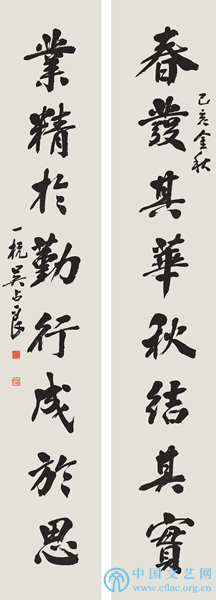 春發其華秋結其實
己亥金秋
業精於勤行成於思
一杭吳占良
中国文艺网
www.cflac.org.cn